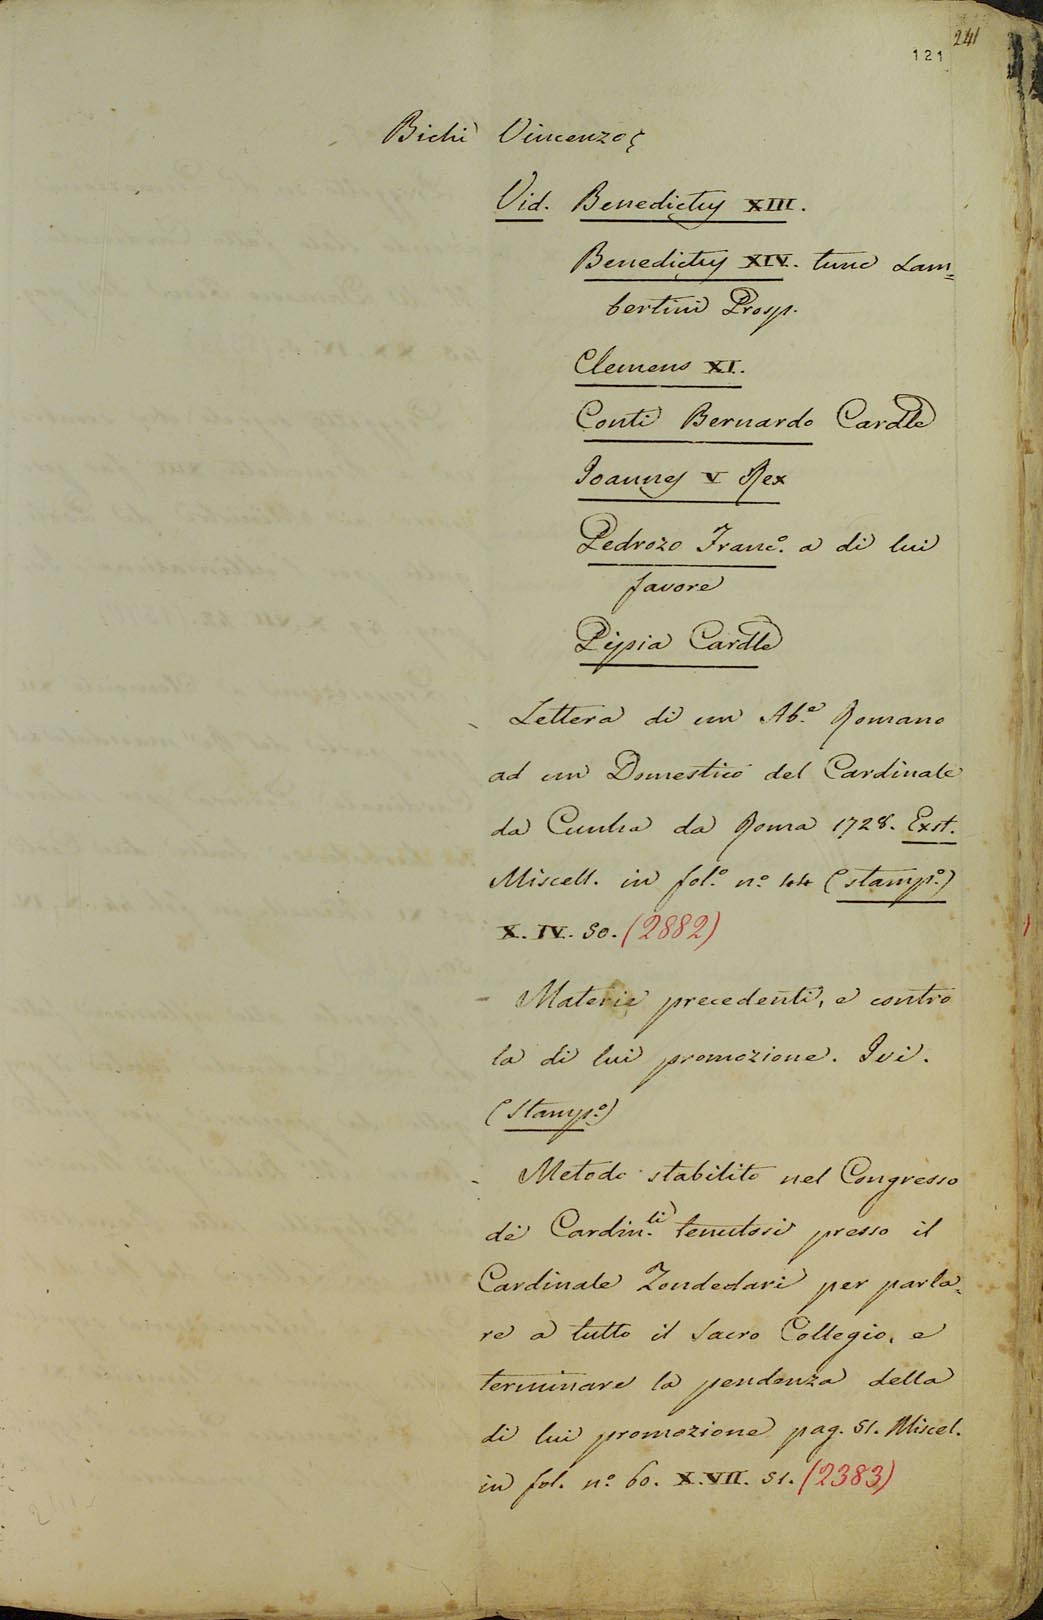 241
121
Bichi Vincenzo
Vid. Benedictus XIII.
Benedictus XIV. tunc Lam=
bertini Prosp.
Clemens XI.
Conti Bernardo Cardle
Joannes V Rex
Pedrozo Franc.º a di lui
favore
Pipia Cardle
- Lettera di un Ab.e Romano
ad un Domestico del Cardinale
da Cunha da Roma 1728. Exst.
Miscell. in fol.º n.º 44 (stamp.º)
X. IV. 50. (2882)
- Materie precedenti, e contro
la di lui promozione. Ivi.
(Stamp.º)
- Metodo stabilito nel Congresso
de Cardin.li tenutosi presso il
Cardinale Zondedari per parla=
re a tutto il Sacro Collegio, e
terminare la pendenza della
di lui promozione pag. 51. Miscel.
in fol. n.º 60. X. VII. 51. (2383)